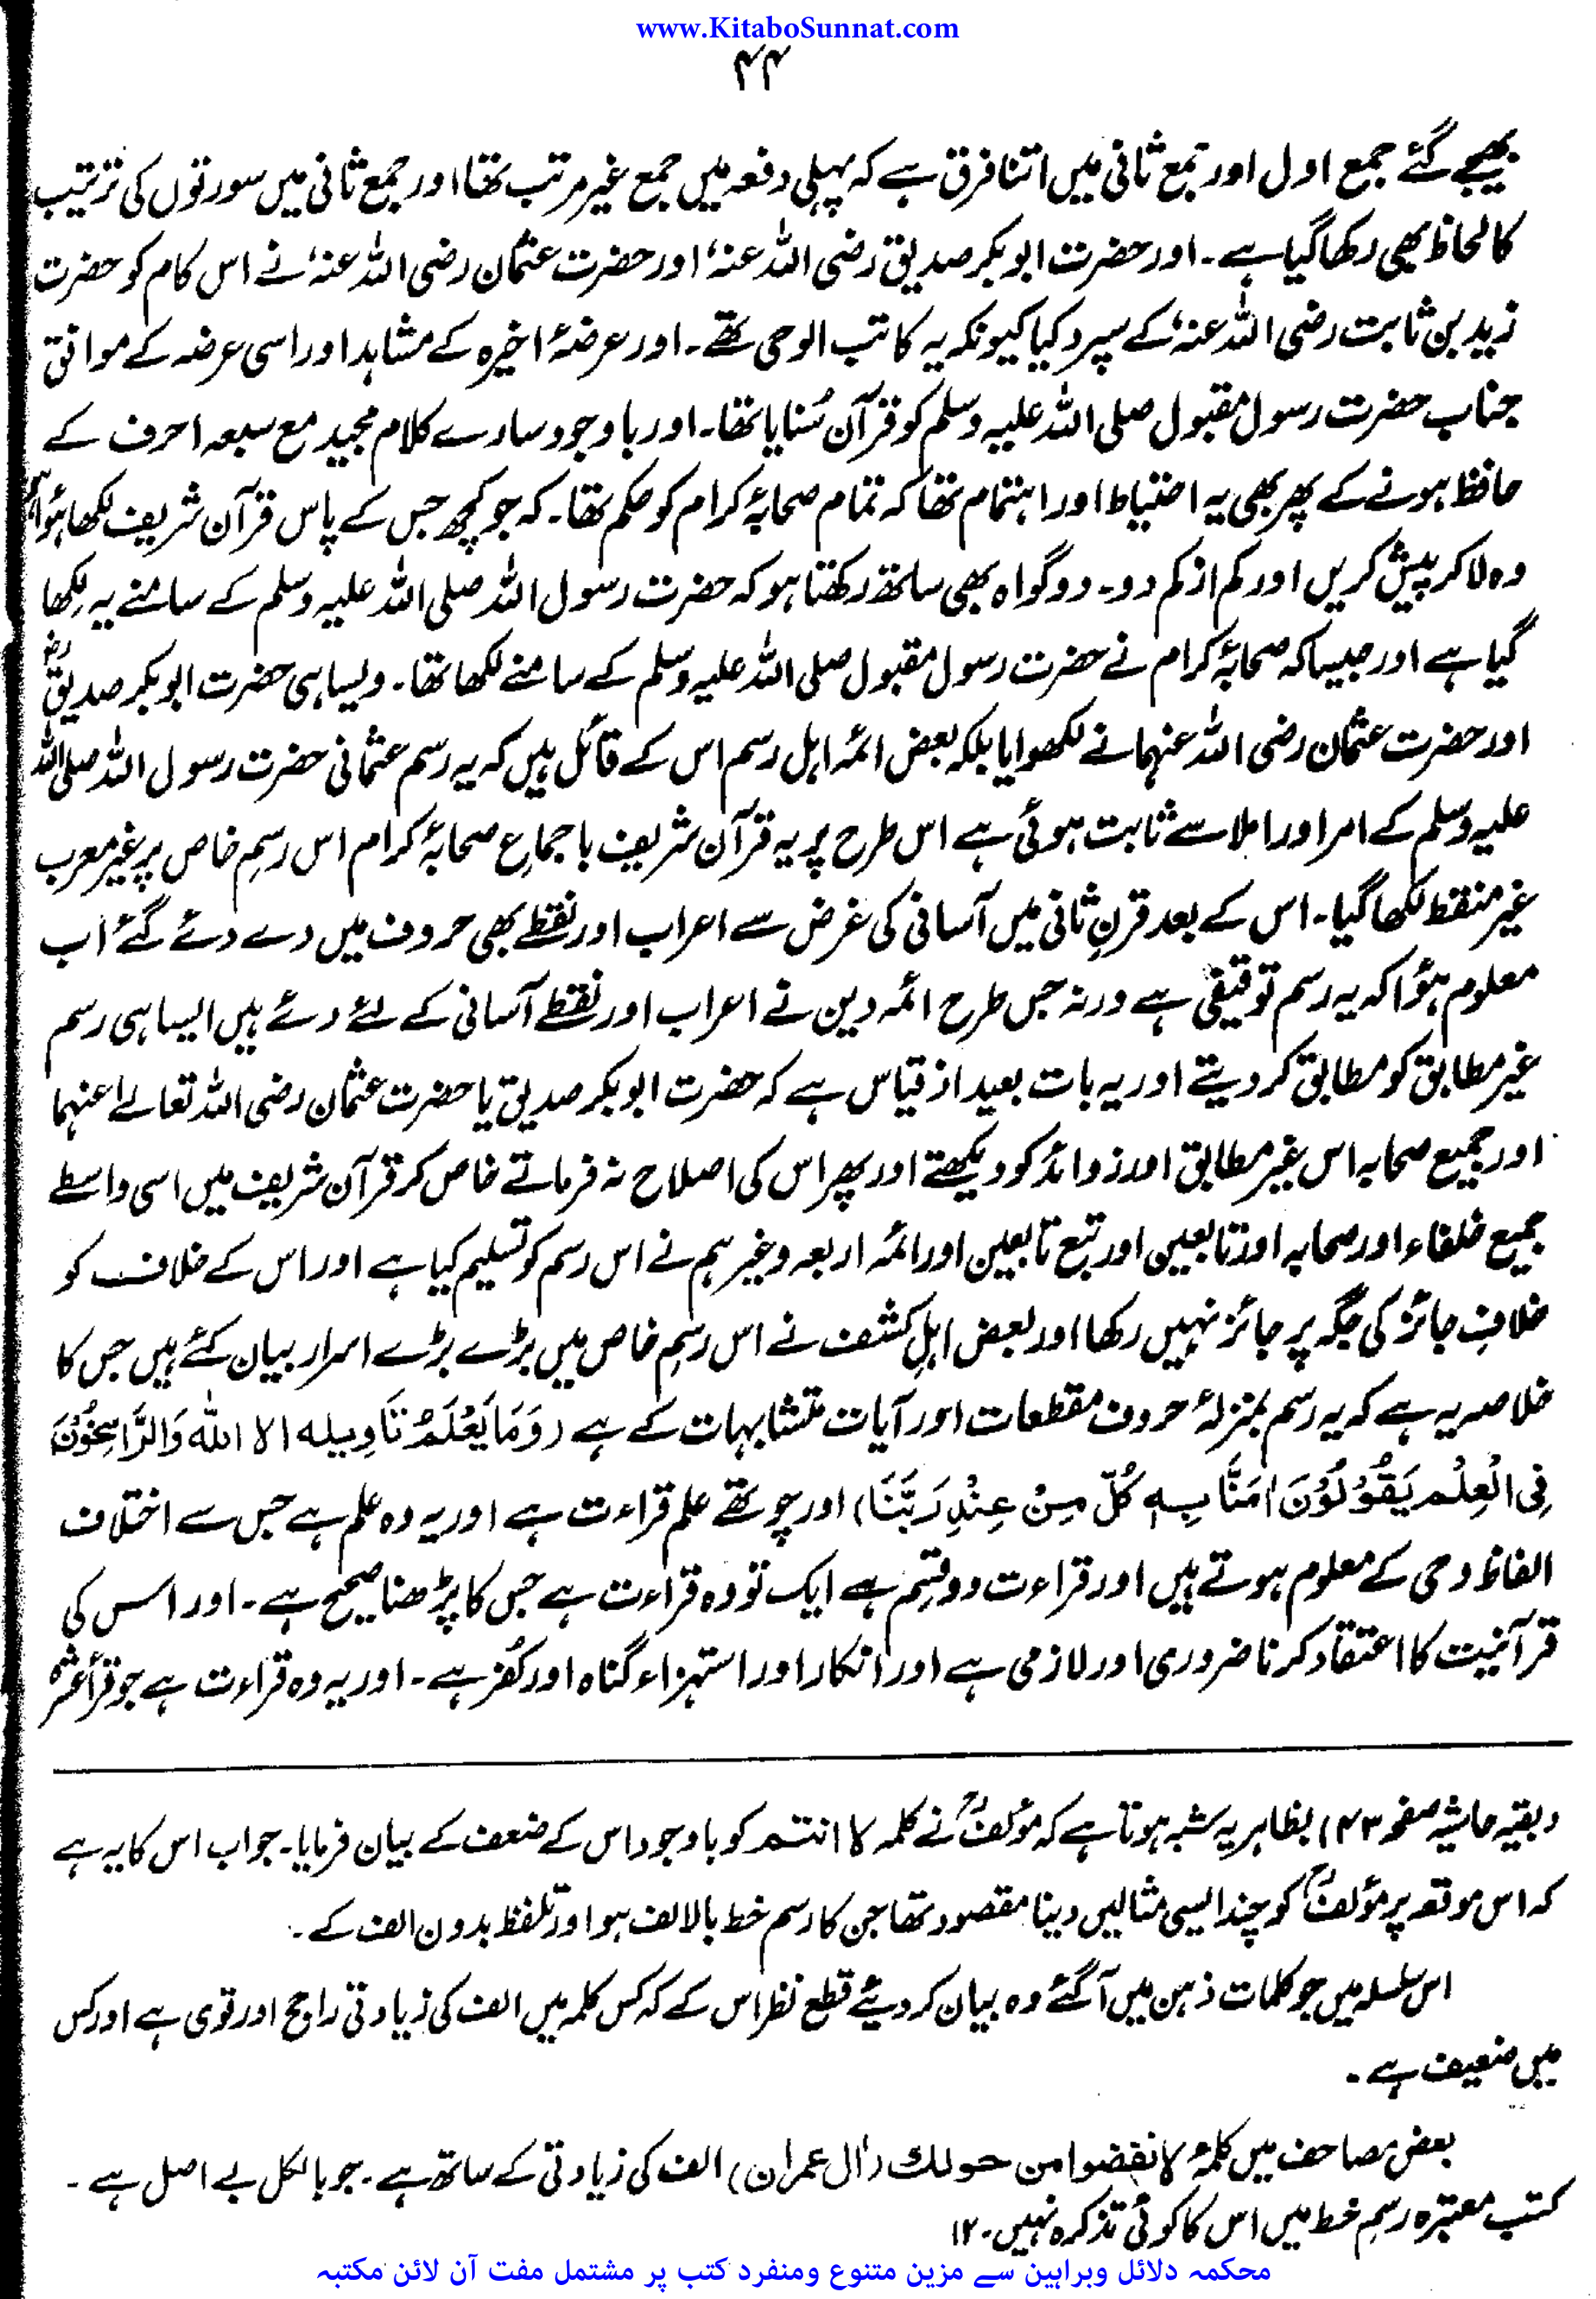 www.KitaboSunnat.com
۴۴
بھیجے گئے جمع اول اور جمع ثانی میں اتنا فرق ہے کہ پہلی دفعہ میں جمع غیر مرتب تھا اور جمع ثانی میں سورتوں کی ترتیب
کا لحاظ بھی رکھا گیا ہے۔ اور حضرت ابوبکر صدیق رضی اللہ عنہٗ اور حضرت عثمان رضی اللہ عنہٗ نے اس کام کو حضرت
زید بن ثابت رضی اللہ عنہٗ کے سپرد کیا کیونکہ یہ کاتب الوحی تھے۔ اور عرضۂ اخیرہ کے مشاہد اور اسی عرضہ کے موافق
جناب حضرت رسول مقبول صلی اللہ علیہ وسلم کو قرآن سُنایا تھا۔ اور باوجود سارے کلام مجید مع سبعہ احرف کے
حافظ ہونے کے پھر بھی یہ احتیاط اور اہتمام تھا کہ تمام صحابۂ کرام کو حکم تھا۔ کہ جو کچھ جس کے پاس قرآن شریف لکھا ہؤا ہو
وہ لا کر پیش کریں اور کم از کم دو۔ دو گواہ بھی ساتھ رکھتا ہو کہ حضرت رسول اللہ صلی اللہ علیہ وسلم کے سامنے یہ لکھا
گیا ہے اور جیسا کہ صحابۂ کرام نے حضرت رسول مقبول صلی اللہ علیہ وسلم کے سامنے لکھا تھا۔ ویسا ہی حضرت ابوبکر صدیقؓ
اور حضرت عثمان رضی اللہ عنہما نے لکھوایا بلکہ بعض ائمہ اہل رسم اس کے قائل ہیں کہ یہ رسم عثمانی حضرت رسول اللہ صلی اللہ
علیہ وسلم کے امر اور املا سے ثابت ہوئی ہے اس طرح پر یہ قرآن شریف باجماع صحابۂ کرام اس رسمِ خاص پر غیر معرب
غیر منقط لکھا گیا۔ اس کے بعد قرنِ ثانی میں آسانی کی غرض سے اعراب اور نقطے بھی حروف میں دے دئے گئے اب
معلوم ہؤا کہ یہ رسم توقیفی ہے ورنہ جس طرح ائمہ دین نے اعراب اور نقطے آسانی کے لئے دئے ہیں ایسا ہی رسم
غیر مطابق کو مطابق کر دیتے اور یہ بات بعید از قیاس ہے کہ حضرت ابوبکر صدیق یا حضرت عثمان رضی اللہ تعالےٰ عنہما
اور جمیع صحابہ اس غیر مطابق اور زوائد کو دیکھتے اور پھر اس کی اصلاح نہ فرماتے خاص کر قرآن شریف میں اسی واسطے
جمیع خلفاء اور صحابہ اور تابعین اور تبع تابعین اور ائمہ اربعہ وغیرہم نے اس رسم کو تسلیم کیا ہے اور اس کے خلاف کو
خلافِ جائز کی جگہ پر جائز نہیں رکھا اور بعض اہلِ کشف نے اس رسمِ خاص میں بڑے بڑے اسرار بیان کئے ہیں جس کا
خلاصہ یہ ہے کہ یہ رسم بمنزلۂ حروف مقطعات اور آیات متشابہات کے ہے (وَمَا يَعْلَمُ تَاوِيله الا الله وَالرَّاسِخُوْنَ
فِی الْعِلْمِ يَقُوْلُوْنَ اٰمَنَّا بِهٖ كُلٌّ مِنْ عِنْدِ رَبِّنَا) اور چوتھے علم قراءت ہے اور یہ وہ علم ہے جس سے اختلاف
الفاظ وحی کے معلوم ہوتے ہیں اور قراءت دو قسم ہے ایک تو وہ قراءت ہے جس کا پڑھنا صحیح ہے۔ اور اس کی
قرآنیت کا اعتقاد کرنا ضروری اور لازمی ہے اور انکار اور استہزاء گناہ اور کُفر ہے۔ اور یہ وہ قراءت ہے جو قرأ عشرہ
(بقیہ حاشیہ صفحہ ۴۳) بظاہر یہ شبہ ہوتا ہے کہ مؤلفؒ نے کلمہ لا انتم کو باوجود اس کے ضعف کے بیان فرمایا۔ جواب اس کا یہ ہے
کہ اس موقعہ پر مؤلفؒ کو چند ایسی مثالیں دینا مقصود تھا جن کا رسم خط بالالف ہو اور تلفظ بدون الف کے۔
اس سلسلہ میں جو کلمات ذہن میں آگئے وہ بیان کر دیئے قطع نظر اس کے کہ کس کلمہ میں الف کی زیادتی راجح اور قوی ہے اور کس
میں ضعیف ہے۔
بعض مصاحف میں کلمۂ لانفضوا من حولك (اٰل عمران) الف کی زیادتی کے ساتھ ہے۔ جو بالکل بے اصل ہے۔
کتب معتبرہ رسمِ خط میں اس کا کوئی تذکرہ نہیں۔ ۱۲
محکمہ دلائل وبراہین سے مزین متنوع ومنفرد کتب پر مشتمل مفت آن لائن مکتبہ